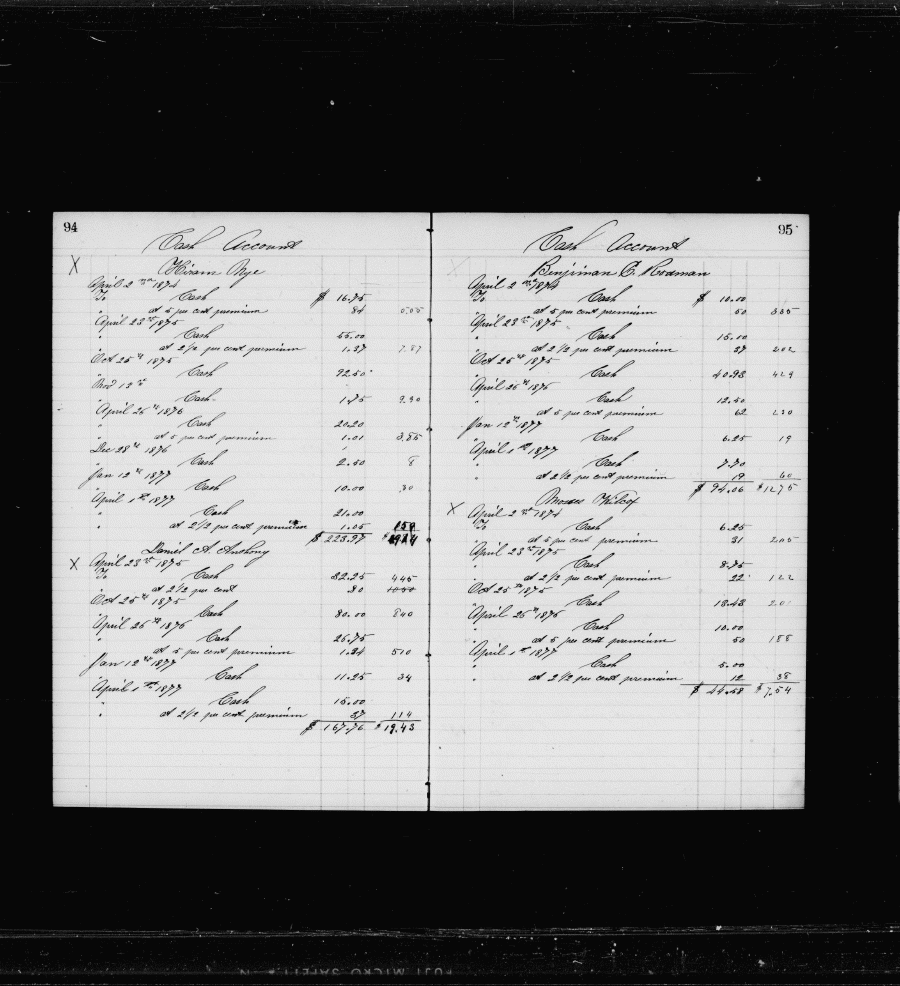 94
Cash Account
X Hiram Nye
April 2nd 1874
To Cash $ 16.75
" at 5 per cent premium 84 505
April 23rd 1875
" Cash 55.00
" at 2 1/2 per cent premium 1.37 7.87
Oct 25th 1875
" Cash 92.50
Nov 12th
" Cash 1.75 9.30
April 26th 1876
" Cash 20.20
" at 5 per cent premium 1.01 3.85
Dec 28th 1876
" Cash 2.50 8
Jan 12th 1877
" Cash 10.00 30
April 1st 1877
" Cash 21.00
" at 2 1/2 per cent premium 1.05 159
$ 223.97
Daniel A. Anthony
X April 23rd 1875
To Cash 32.25 445
" at 2 1/2 per cent 80
Oct 25th 1875
" Cash 80.00 840
April 26th 1876
" Cash 26.75
" at 5 per cent premium 1.34 510
Jan 12th 1877
" Cash 11.25 34
April 1st 1877
" Cash 15.00
" at 2 1/2 per cent premium 37 114
$ 167.76 $ 19.43
95
Cash Account
X Benjiman C. Rodman
April 2nd 1874
To Cash $ 10.00
" at 5 per cent premium 50 335
April 23rd 1875
" Cash 15.10
" at 2 1/2 per cent premium 37 202
Oct 25th 1875
" Cash 40.93 429
April 26th 1876
" Cash 12.50
" at 5 per cent premium 62 230
Jan 12th 1877
" Cash 6.25 19
April 1st 1877
" Cash 7.70
" at 2 1/2 per cent premium 19 60
$ 94.06 $ 1275
X Moses Wilcox
April 2nd 1874
To Cash 6.25
" at 5 per cent premium 31 205
April 23rd 1875
" Cash 8.75
" at 2 1/2 per cent premium 22 122
Oct 25th 1875
" Cash 13.43 201
April 26th 1876
" Cash 10.00
" at 5 per cent premium 50 188
April 1st 1877
" Cash 5.00
" at 2 1/2 per cent premium 12 38
$ 44.58 $ 7.54